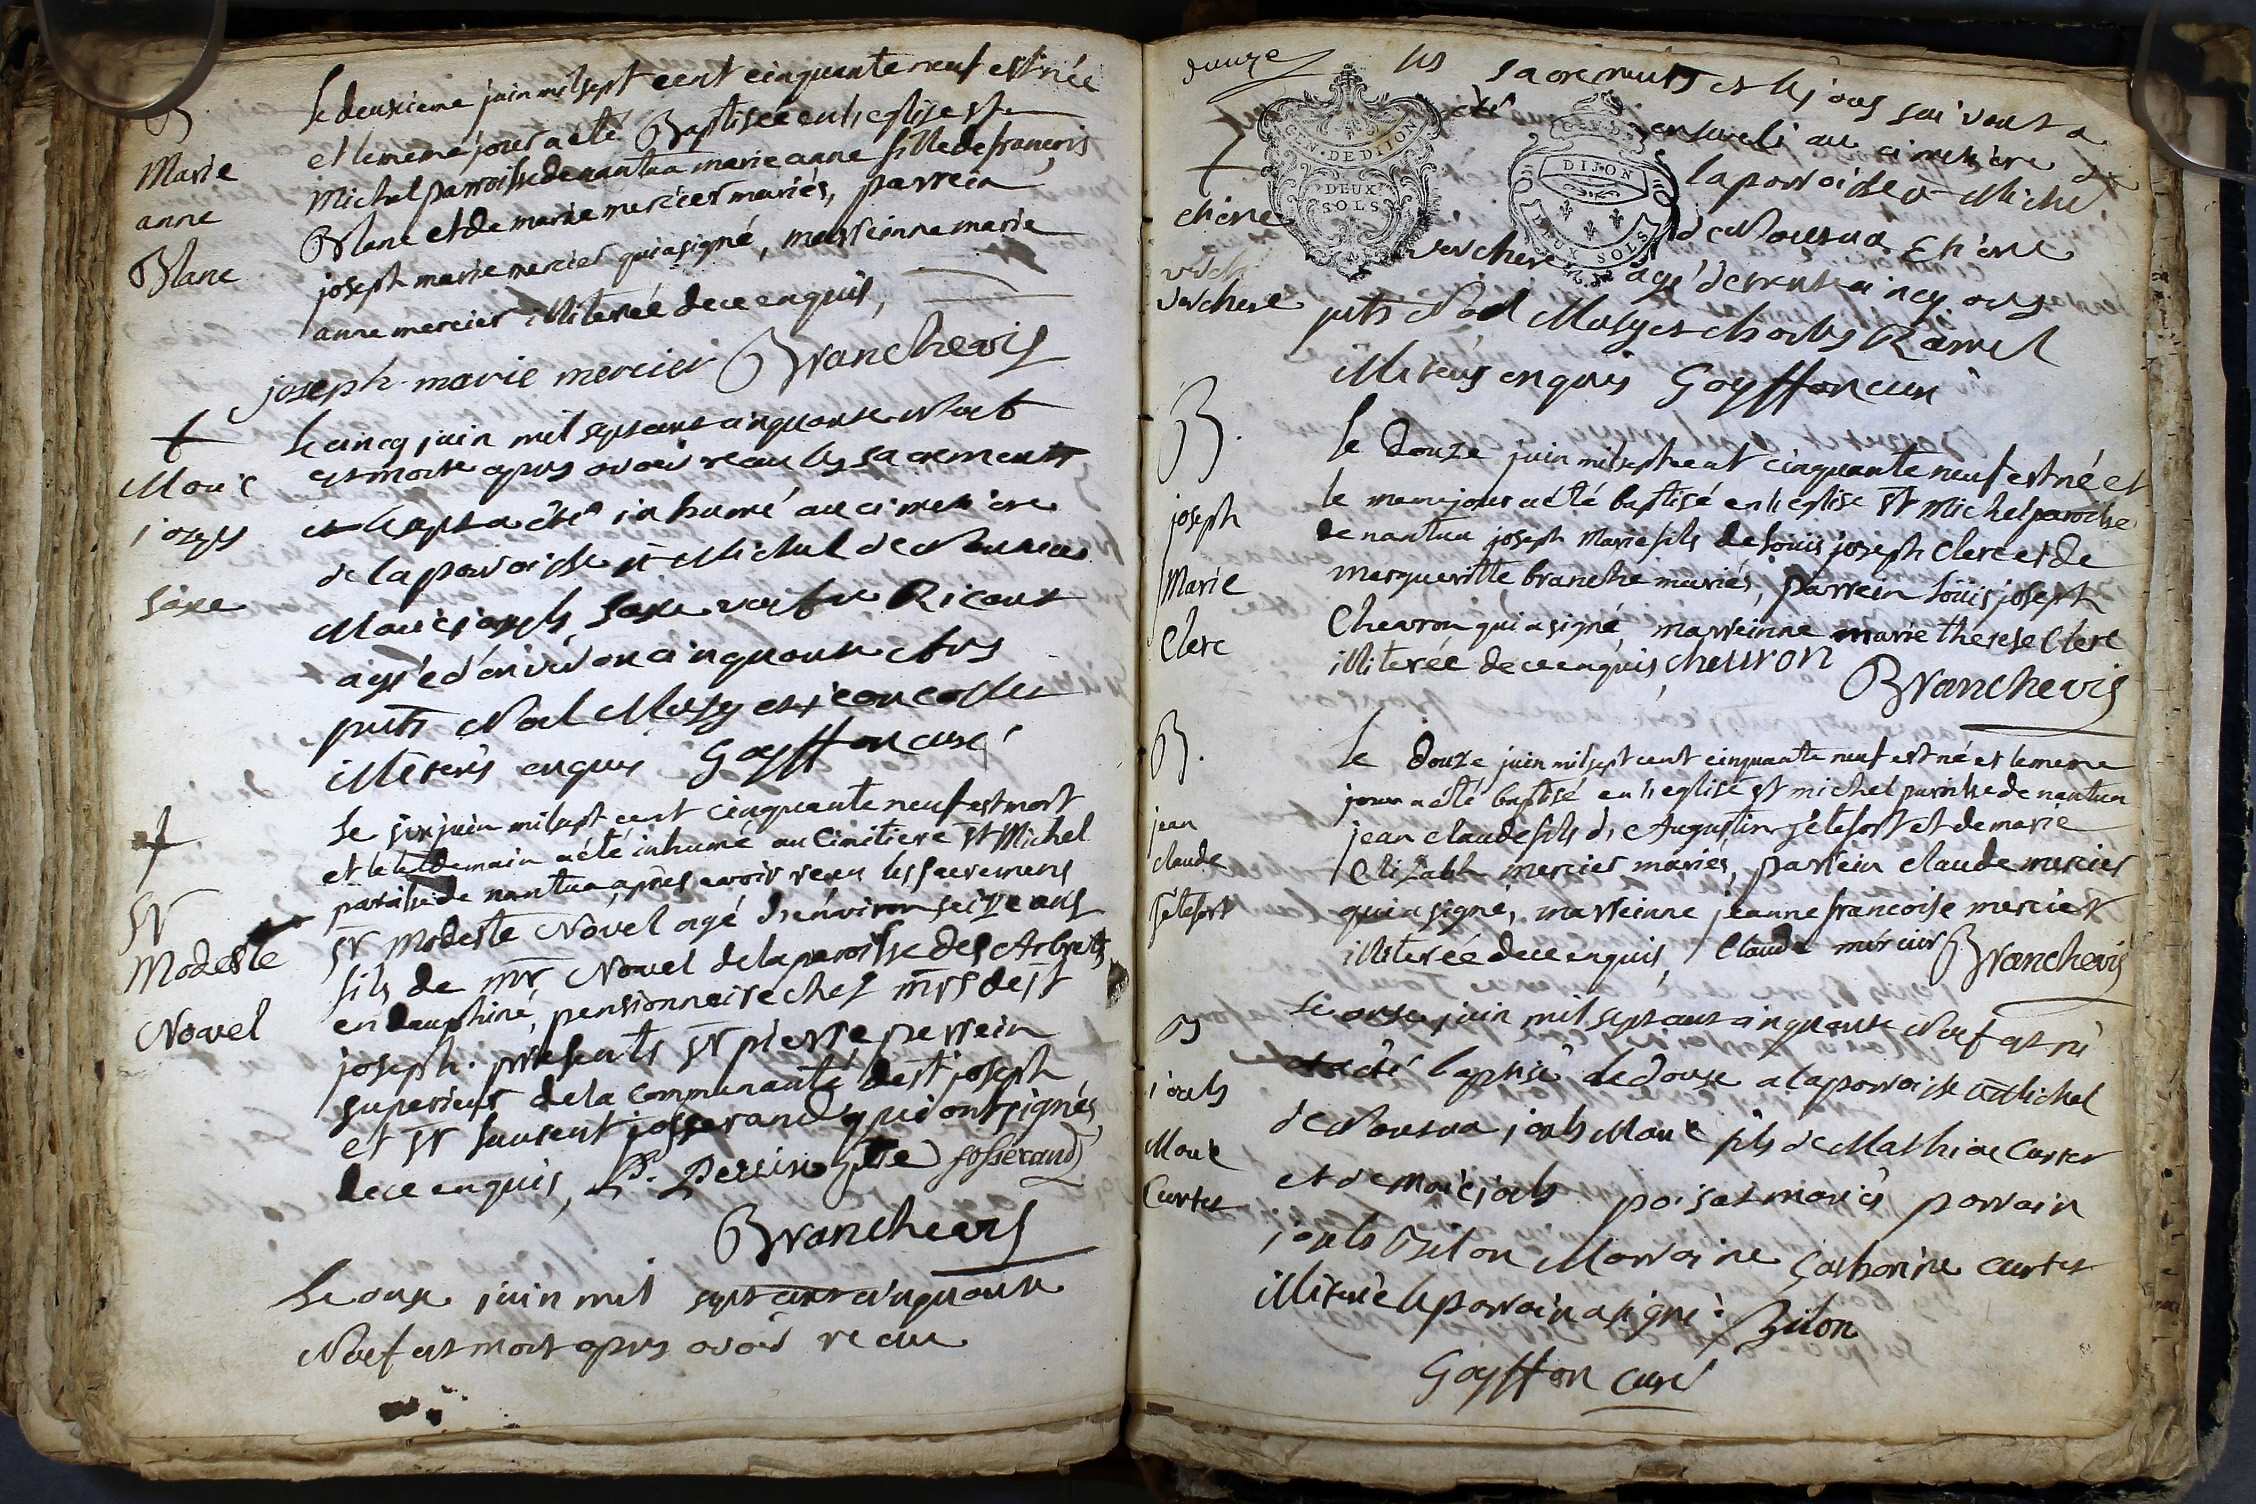 B
Marie
anne
Blanc
Le deuxieme juin mil sept cent cinquante neuf est née
et le meme jour a eté Baptisée en l'eglise St
Michel parroisse de nantua marie anne fille de francois
Blanc et de marie mercier mariés, parrein
joseph marie mercier qui a signé, marreinne marie
anne mercier illiterée de ce enquis,
joseph marie mercier Branchevis
Marie
joseph
saxe
Le cinq juin mil sept cent cinquante Neuf
est morte apres avoir recu les sacrements
et le sept a été inhumé au cimetiere
de la parroisse st Michel de Nantua
Marie joseph saxe
agée d'environ cinquante Ans
pnts Noel Musy et jean
illiterés enquis Goyffon curé
Sr
Modeste
Novel
Le six juin mil sept cent cinquante neuf est mort
et le lendemain a été inhumé au Cimitiere St Michel
paroisse de nantua, apres avoir recu les sacremens
Sr Modeste Novel agé d'environ seize ans
fils de mr Novel de la paroisse des Abrets
en dauphiné, pensionnaire chez mrs de st
joseph. presents Sr pierre perrein
superieur de la Communauté de st joseph
et Sr Laurent josserand qui ont signés
de ce enquis, P. Perrin josserand
Branchevis
Le onze juin mil sept cent cinquante
Neuf est mort apres avoir recu
douze
les sacrements et le jour suivant a
été enseveli au cimetiere de
la parroisse st Michel
de Nantua Etiene
verchere agé de trente cinq ans
pnts Noel Musy et charles Ravel
illiterés enquis Goyffon curé
etiene
verchere
B.
joseph
Marie
Clerc
Le Douze juin mil sept cent cinquante neuf est né et
le meme jour a été baptisé en l'eglise St Michel paroisse
de nantua joseph Marie fils de Loüis joseph Clerc et de
margueritte branche mariés, parrein Loüis joseph
Chevron qui a signé, marreinne marie therese Clerc
illiterée de ce enquis, chevron
Branchevis
B.
jean
claude
jetefort
Le Douze juin mil sept cent cinquante neuf est né et le meme
jour a été baptisé en l'eglise St michel paroisse de nantua
jean claude fils d'Augustin jetefort et de marie
Elizabth mercier mariés, parrein claude mercier
qui a signé, marreinne jeanne francoise mercier
illiterée de ce enquis, Claude mercier Branchevis
B
joseph
Marie
Curtet
Le onze juin mil sept cent cinquante Neuf est né
et a été baptisé le douse a la parroisse st Michel
de Nantua joseph Marie fils de Mathieu Curtet
et de Marie joseph poisat mariés parrain
joseph Bilon Marraine Catherine Curtet
illiterée le parrain a signé. Bilon
Goyffon curé
GEN. DE DIJON
DEUX
SOLS
DIJON
DEUX SOLS